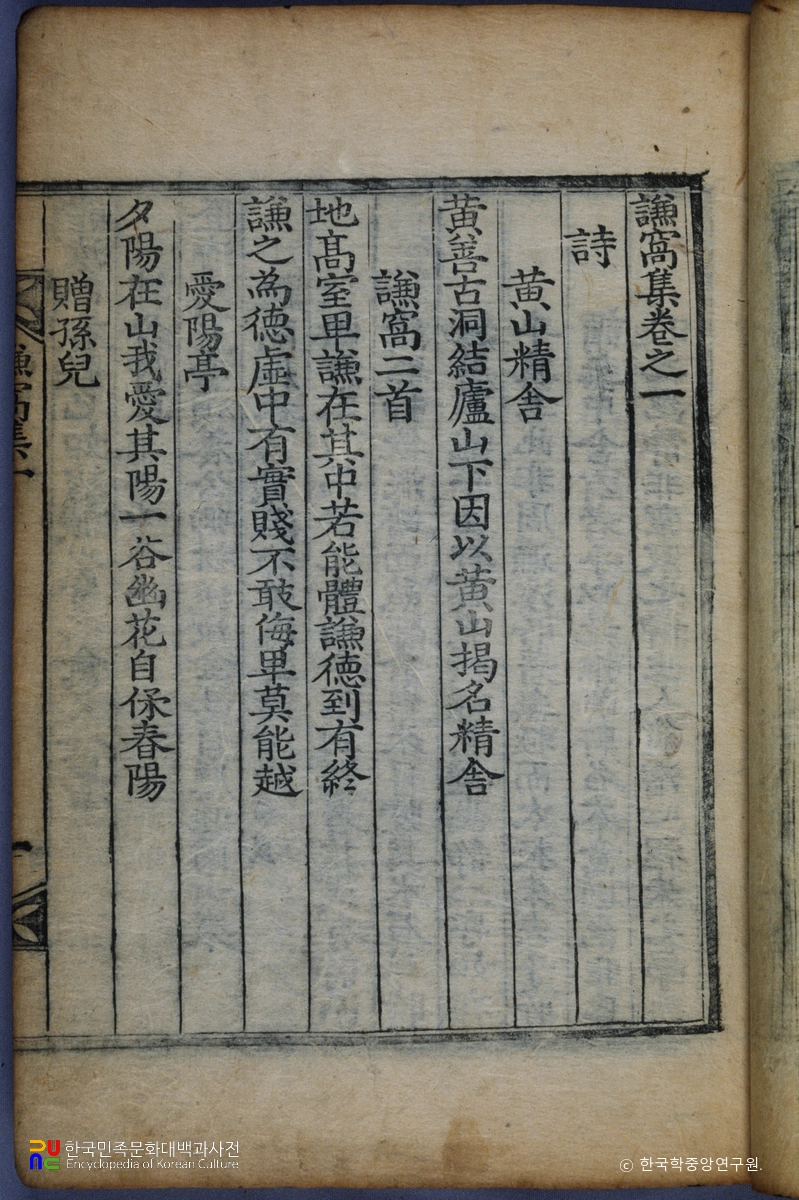 謙窩集卷之一
詩
黃山精舍
黃善古洞結廬山下因以黃山揭名精舍
謙窩二首
地髙室卑謙在其中若能體謙德到有終
謙之為德虛中有實賤不敢侮卑莫能越
愛陽亭
夕陽在山我愛其陽一谷幽花自保春陽
贈孫兒
謙窩集一
한국민족문화대백과사전
Encyclopedia of Korean Culture
© 한국학중앙연구원.